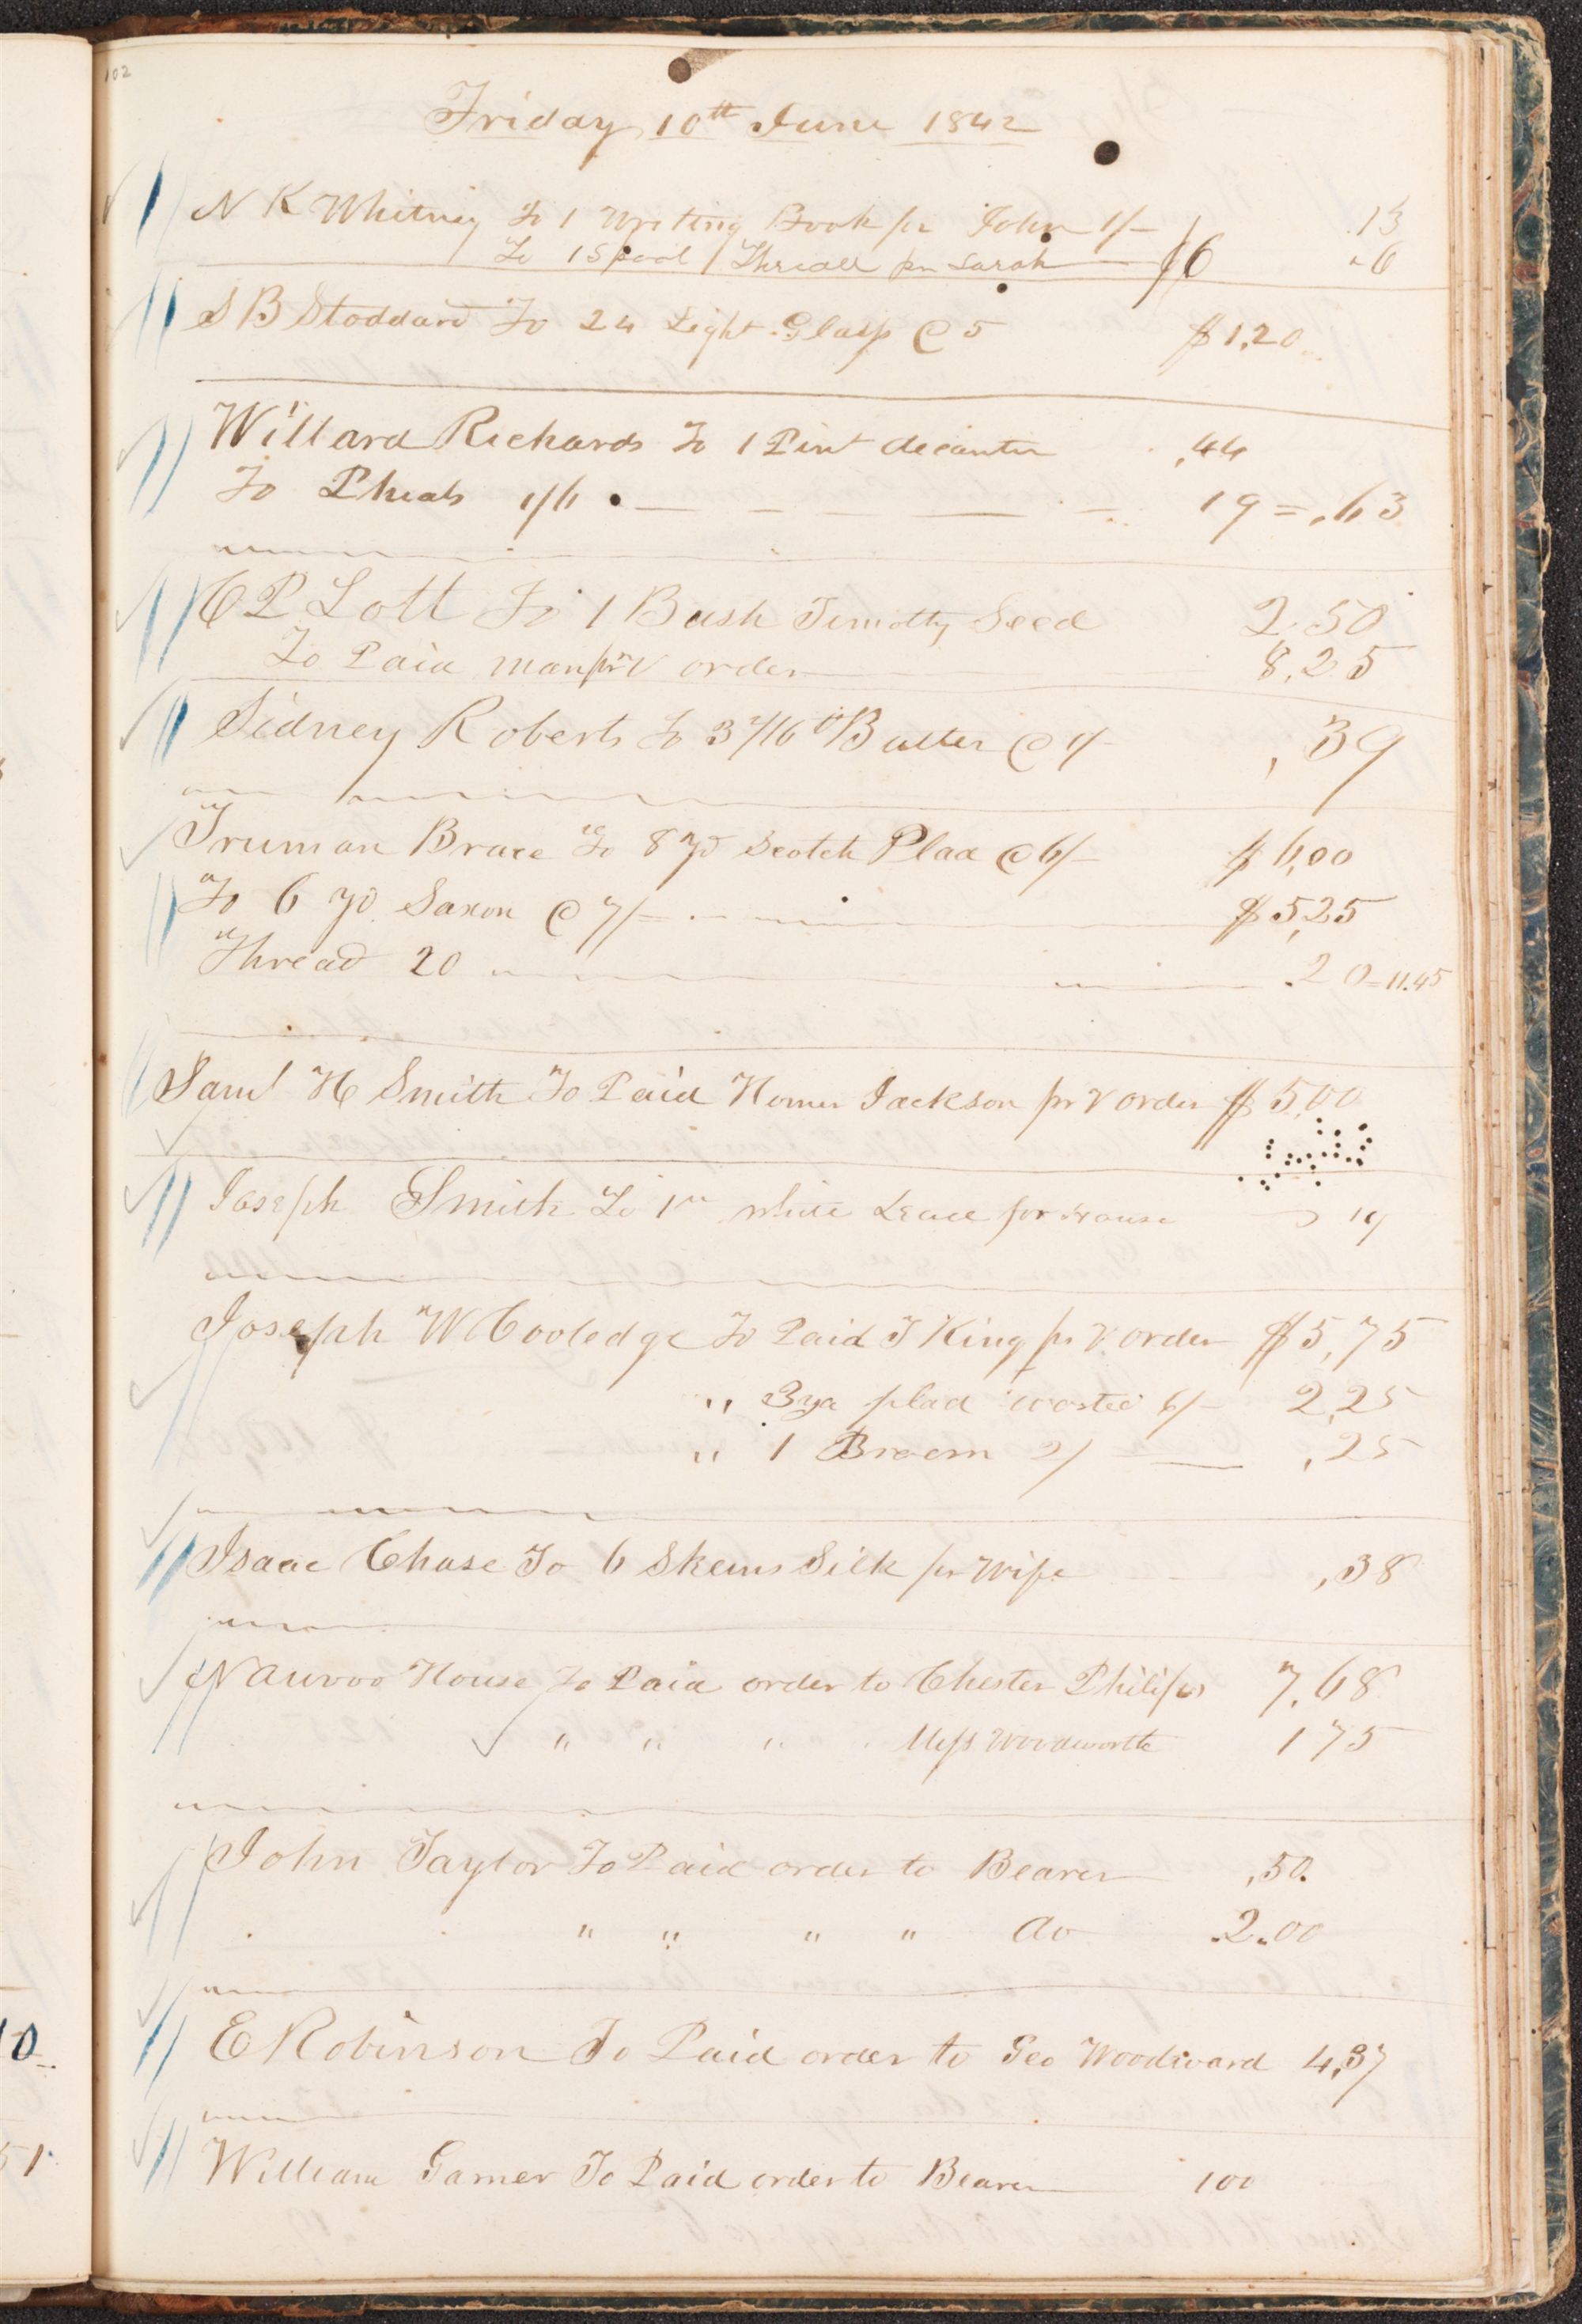 102
Friday 10th June 1842
N K Whitney To 1 Writing Book pr John 1/– .13
To 1 Spool Thread pr Sarah /6 .6
S B Stoddard To 24 Light Glass @ 5 $1,20
Willard Richards To 1 Pint decanter ,44
To Pheals 1/6 19 = ,63
C P Lott To 1 Bush Timothy Seed 2.50
To Paid man pr order 8,25
Sidney Roberts To 3 2/16 lb Butter @ 1/– ,39
Truman Brace To 8 yd Scotch Plad @ 6/– $6,00
To 6 yd Saxon @ 7/– $5,25
Thread 20 .20 = 11.45
Saml H Smith To Paid Homer Jackson pr V order $5,00
Joseph Smith To 1 white Lead for House 19
Joseph W Cooledge To Paid T King pr V order $5,75
" 3 yd plad 6/– 2,25
" 1 Broom 2/ ,25
Isaac Chase To 6 Skeins Silk pr Wife ,38
Nauvoo House To Paid order to Chester Philips 7,68
" " " Miss Woodworth 175
John Taylor To Paid order to Bearer ,50.
" " " " do 2.00
E Robinson To Paid order to Geo Woodward 4,37
William Garner To Paid order to Bearer 100
10
51